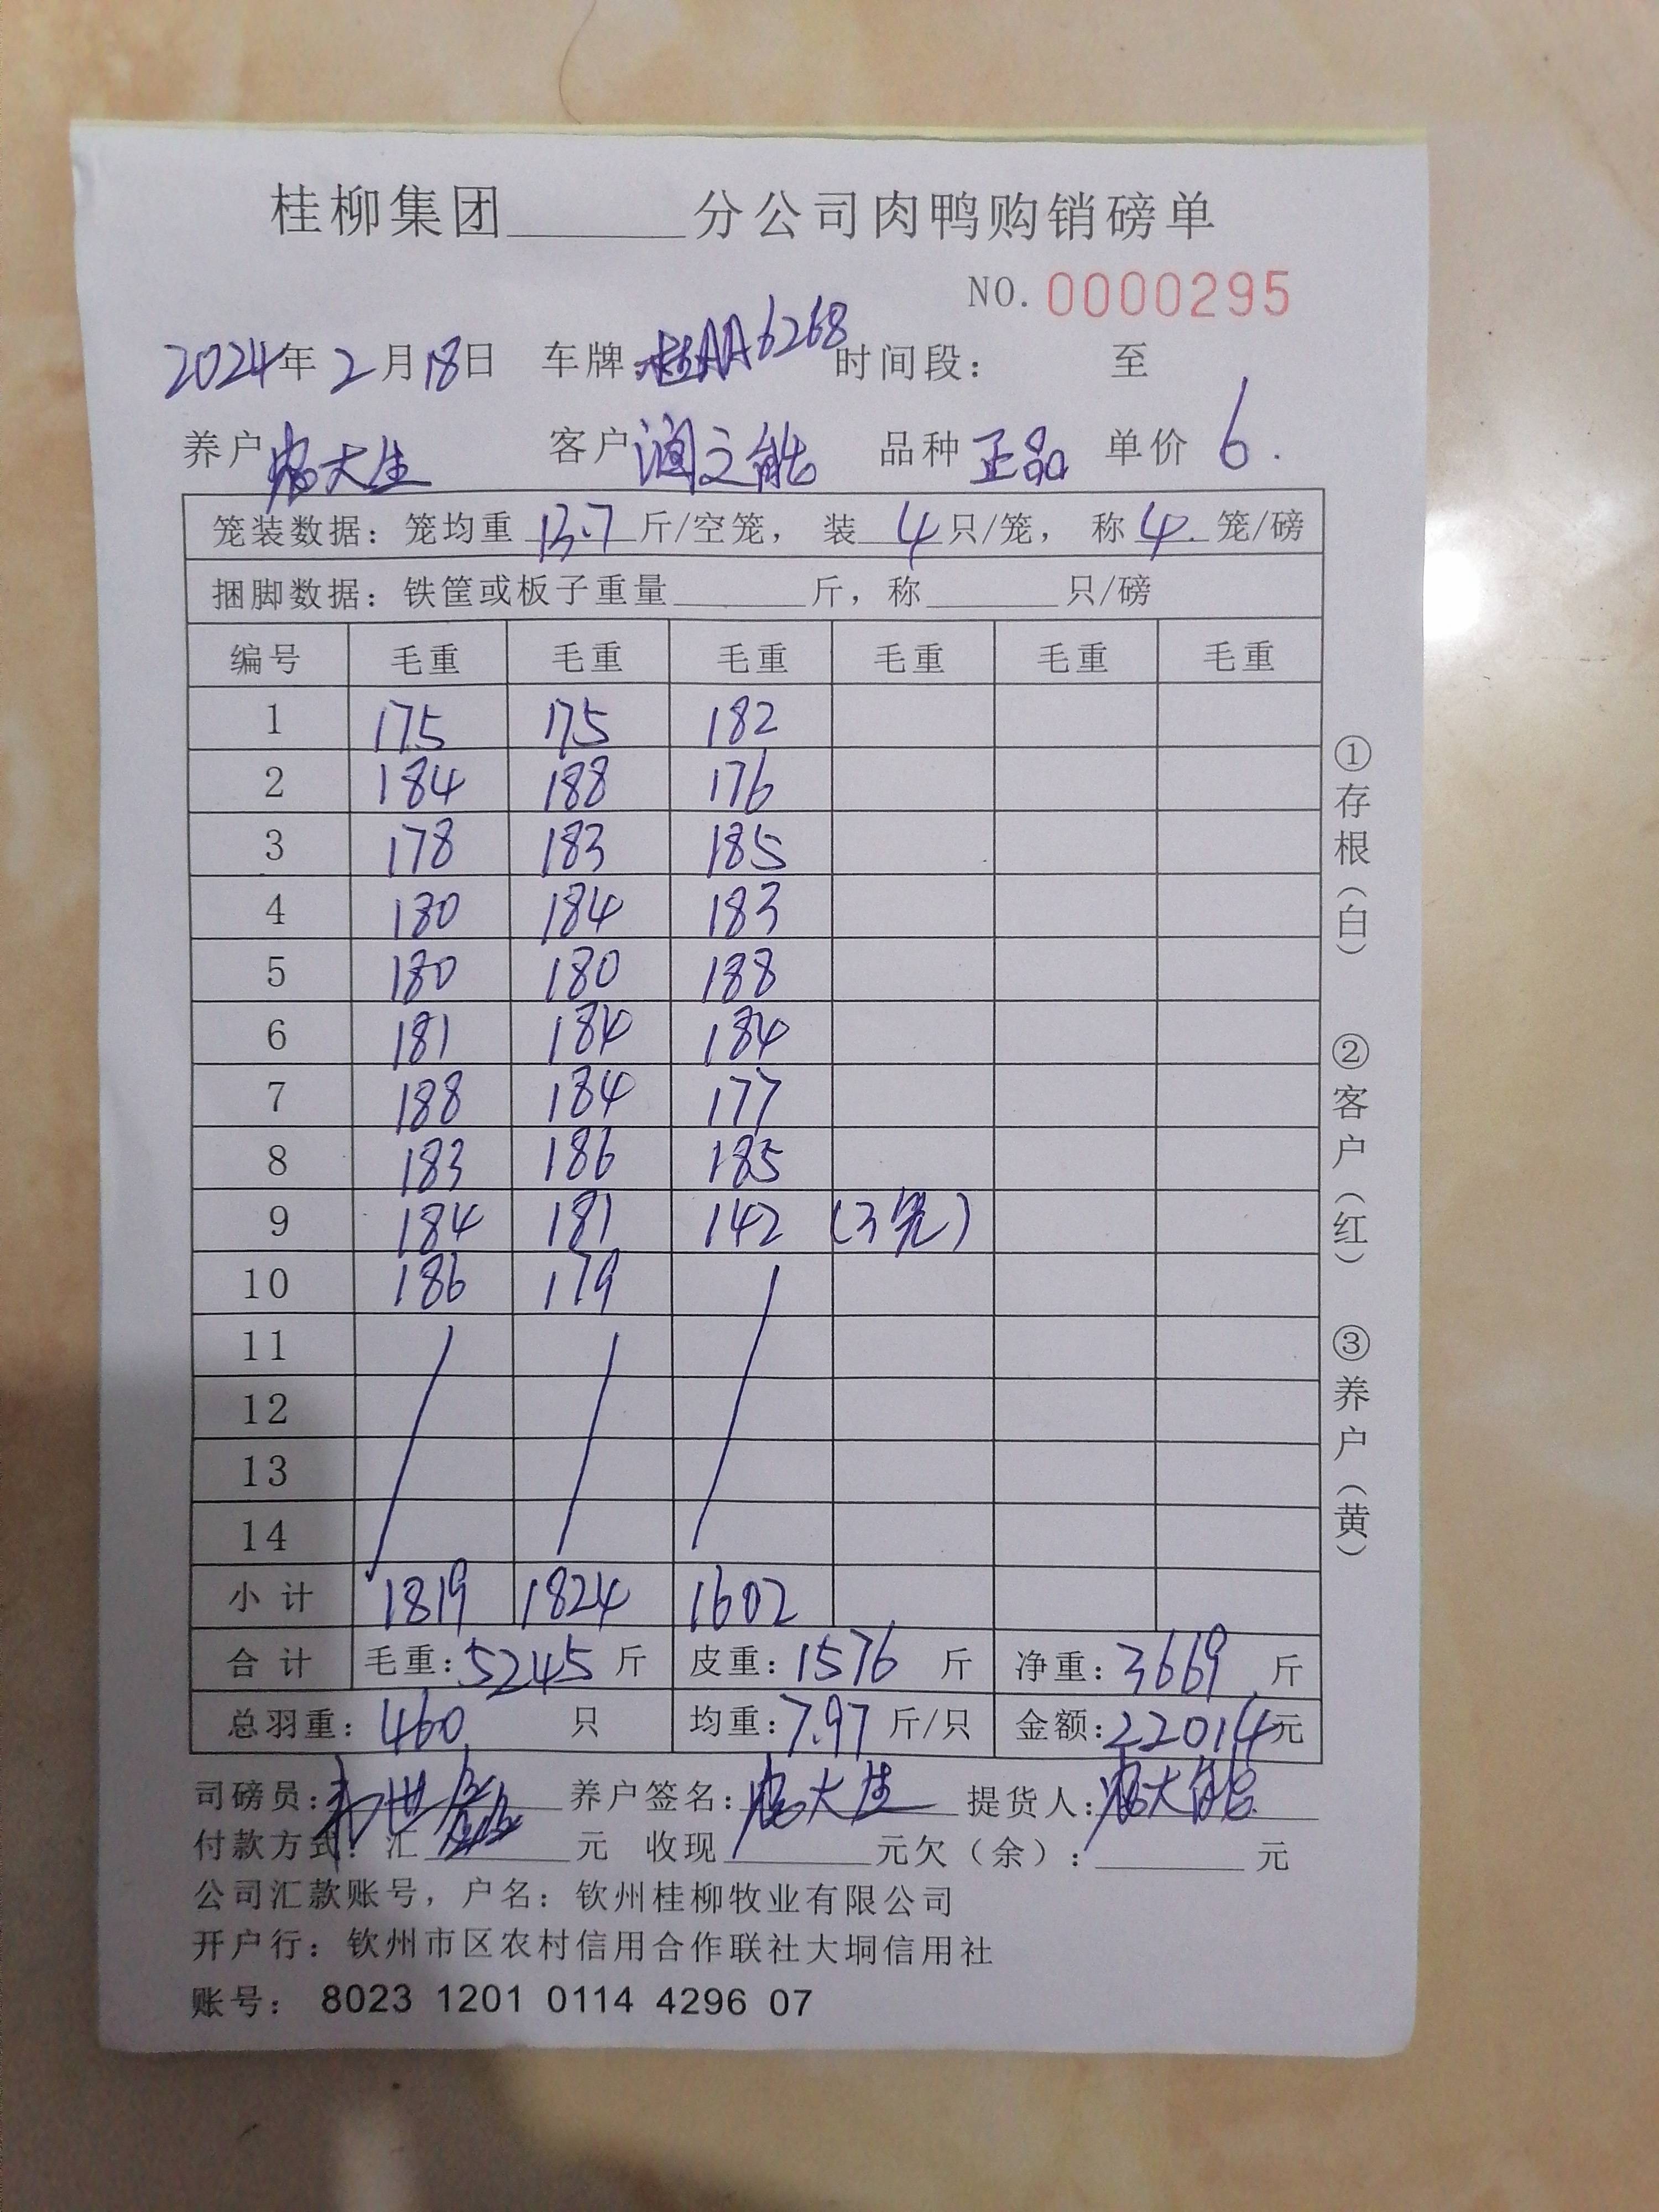 桂柳集团______分公司肉鸭购销磅单
NO. 0000295
2024年2月18日 车牌:桂AA6268 时间段: 至
养户 大生 客户 之能 品种 正品 单价 6.
笼装数据：笼均重 13.7 斤/空笼，装 4 只/笼，称 4. 笼/磅
捆脚数据：铁筐或板子重量______斤，称______只/磅
编号 毛重 毛重 毛重 毛重 毛重 毛重
1 175 175 182
2 184 188 176
3 178 183 185
4 180 184 183
5 180 180 188
6 181 184 184
7 188 184 177
8 183 186 185
9 184 181 142 (3笼)
10 186 179
11
12
13
14
小计 1819 1824 1602
合计 毛重:5245斤 皮重:1576斤 净重:3669斤
总羽重:460只 均重:7.97斤/只 金额:22014元
司磅员: 养户签名: 大生 提货人: 大能
付款方式：汇______元 收现______元欠（余）:______元
公司汇款账号，户名：钦州桂柳牧业有限公司
开户行：钦州市区农村信用合作联社大垌信用社
账号： 8023 1201 0114 4296 07
①存根（白）
②客户（红）
③养户（黄）